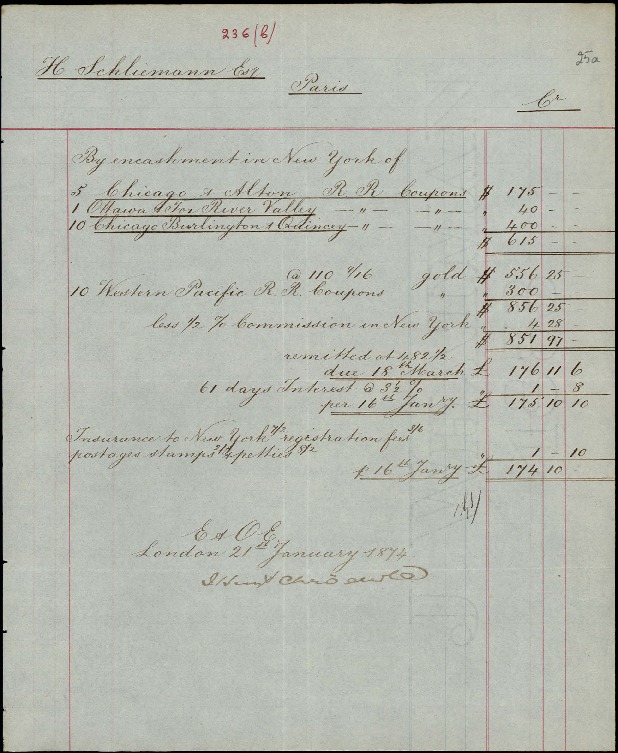 236(b)
25a
H Schliemann Esq
Paris
Cr
By encashment in New York of
5 Chicago & Alton R. R. Coupons $ 175 - -
1 Ottawa & Fox River Valley — " — — " — " 40 - -
10 Chicago Burlington & Quincey — " — — " — " 400 - -
$ 615 - -
@ 110 9/16 gold $ 556 25 -
10 Western Pacific R. R. Coupons " " 300 - -
$ 856 25
less 1/2 % Commission in New York " 4 28
$ 851 97 -
remitted at 482 1/2
due 18th March £ 176 11 6
61 days Interest @ 3 1/2 % " 1 - 8
per 16th Janry. £ 175 10 10
Insurance to New York registration fees
postages stamps & petties " 1 - 10
£ 16th Janry £ 174 10 -
E & O E
London 21st January 1874